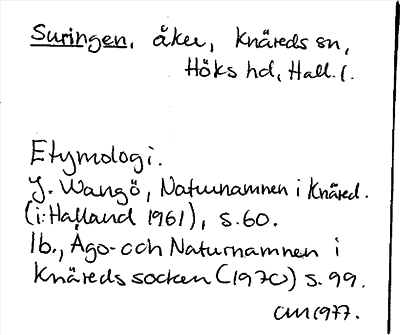 Suringen, åker, Knäreds sn,
Höks hd, Hall. l.
Etymologi.
J. Wangö, Naturnamnen i Knäred.
(i: Halland 1961), s. 60.
Ib., Ägo- och Naturnamnen i
Knäreds socken (1970) s. 99.
CM 1977.